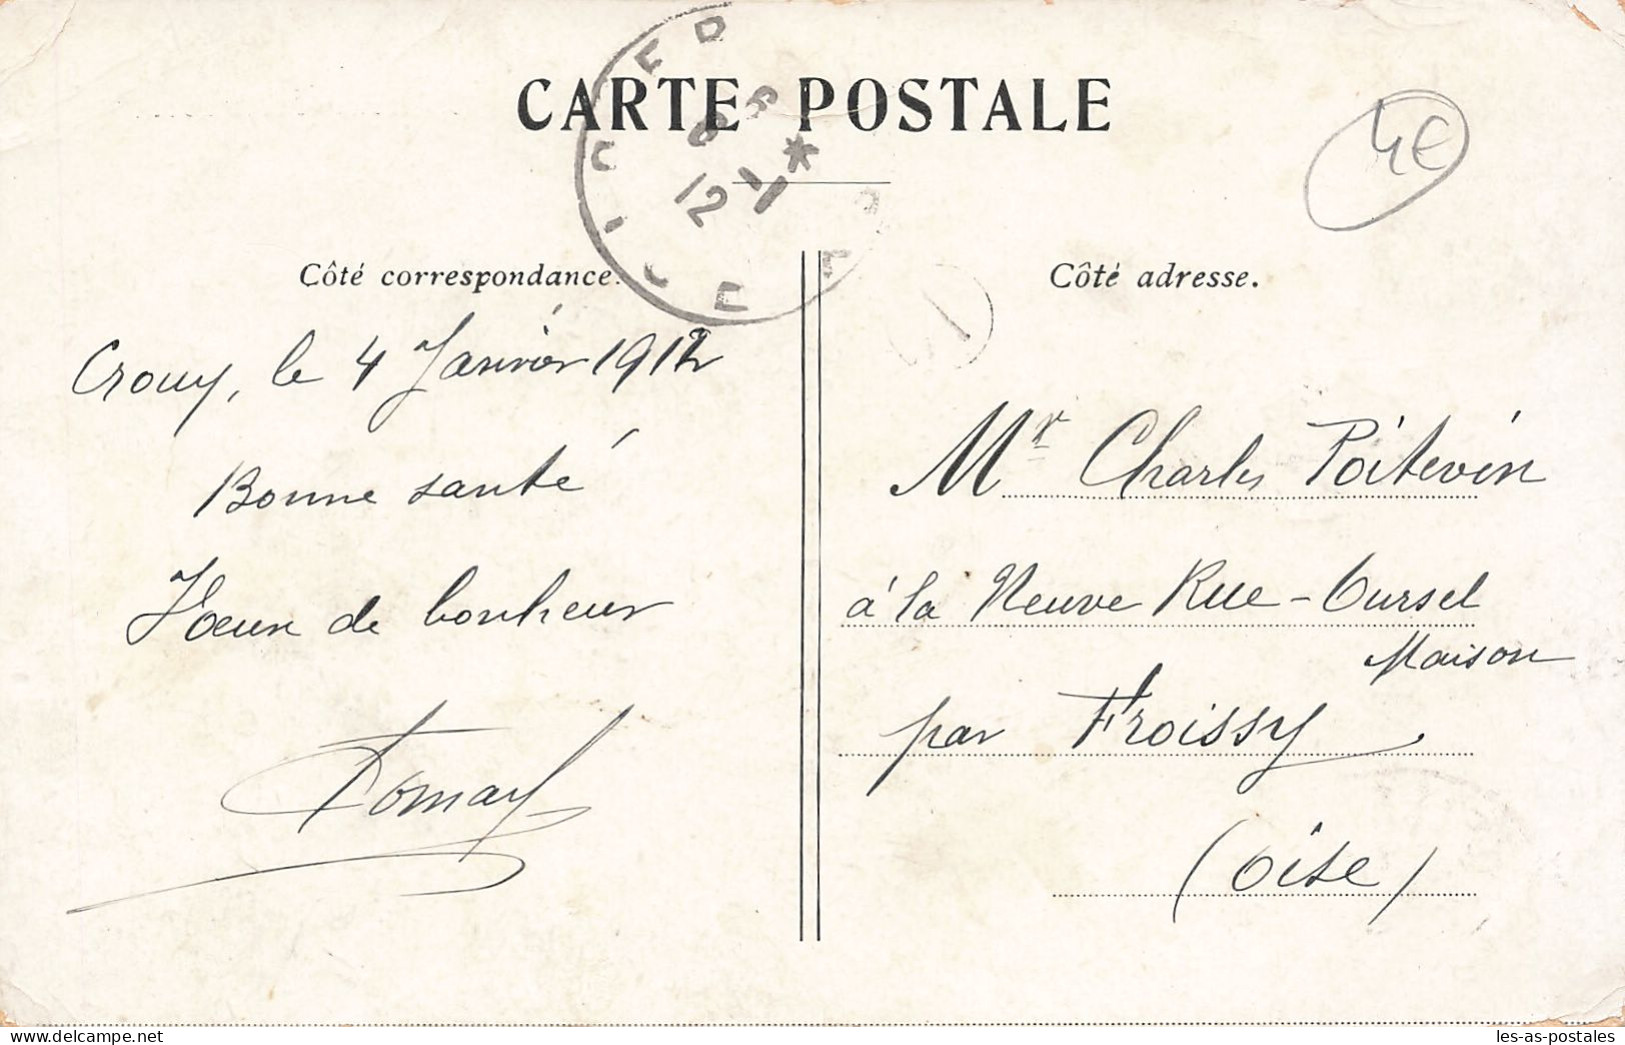 CARTE POSTALE
4€
Côté correspondance.
Côté adresse.
Crouy, le 4 Janvier 1912
Bonne santé
Voeux de bonheur
Mr Charles Poitevin
à la Neuve Rue - Oursel
Maison
par Froissy
(Oise)
les-as-postales